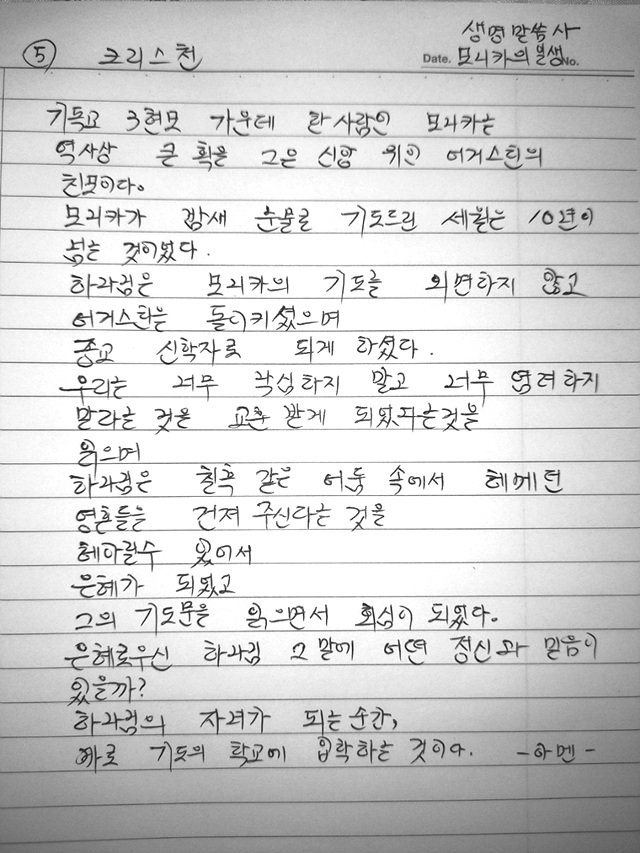 생명말씀사
⑤ 크리스천
Date. 모니카의 일생 No.
기독교 3현모 가운데 한사람인 모니카는
역사상 큰 획을 그은 신앙 위인 어거스틴의
친모이다.
모니카가 밤새 눈물로 기도드린 세월는 10년이
넘는 것이었다.
하나님은 모니카의 기도를 외면하지 않고
어거스틴을 돌이키셨으며
종교 신학자로 되게 하셨다.
우리는 너무 낙심하지 말고 너무 염려하지
말라는 것을 교훈 받게 되었다는것을
읽으며
하나님은 칠흑 같은 어둠 속에서 헤메던
영혼들을 건져 주신다는 것을
헤아릴수 있어서
은혜가 되었고
그의 기도문을 읽으면서 회심이 되었다.
은혜로우신 하나님 그 말에 어떤 정신과 믿음이
있을까?
하나님의 자녀가 되는 순간,
바로 기도의 학교에 입학하는 것이다. -아멘-